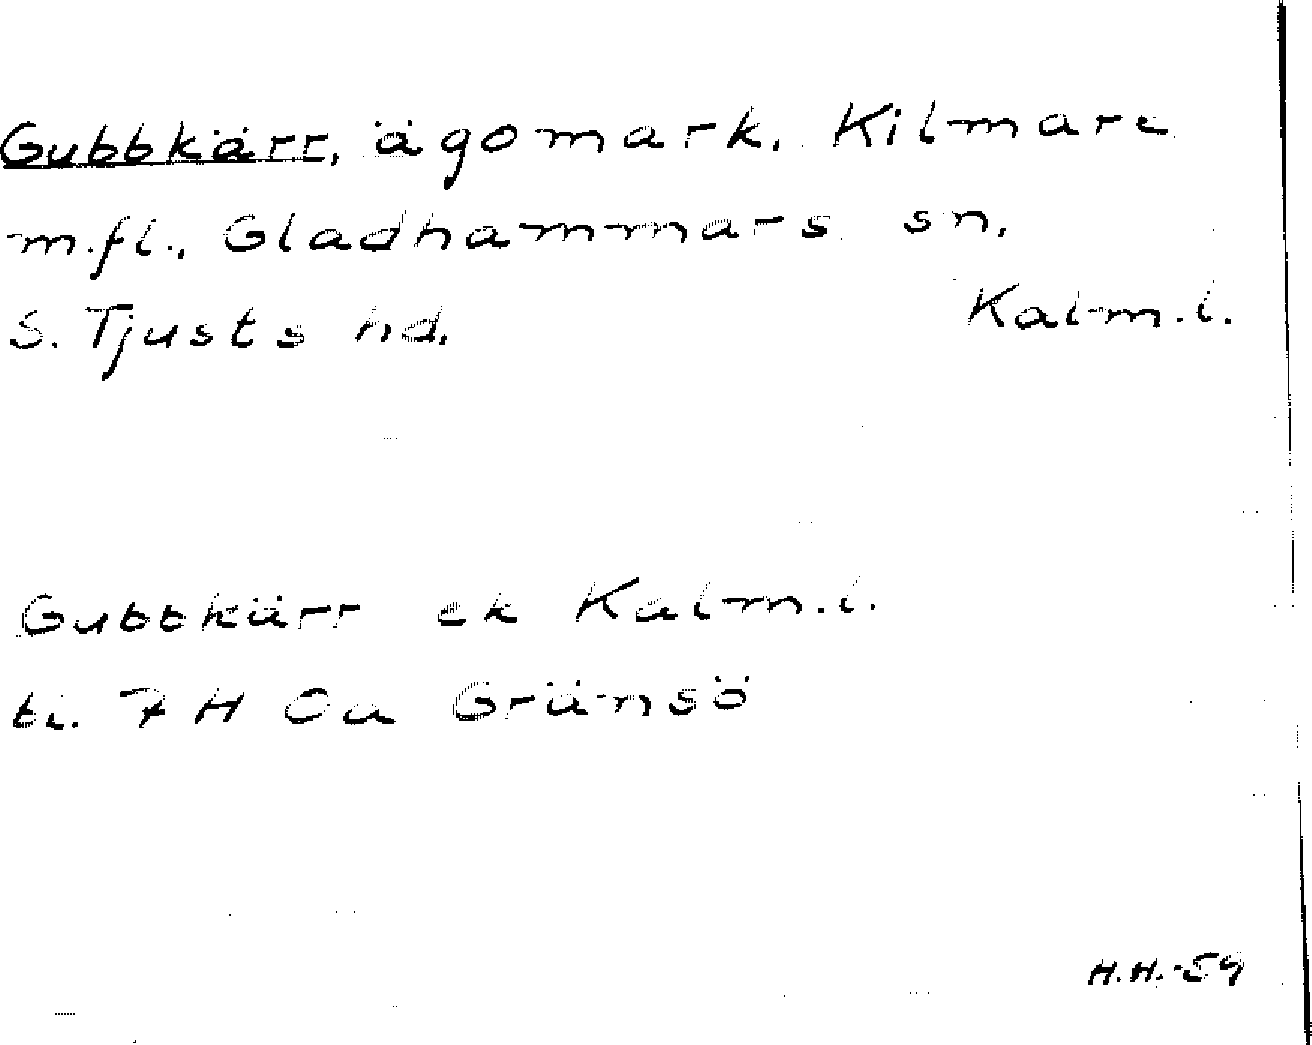 Gubbkärr, ägomark, Kilmare
m.fl., Gladhammars sn,
S. Tjusts hd. Kalm.l.
Gubbkärr ek Kalm.l.
bl. 7 H Oa Gränsö
H.H.-59